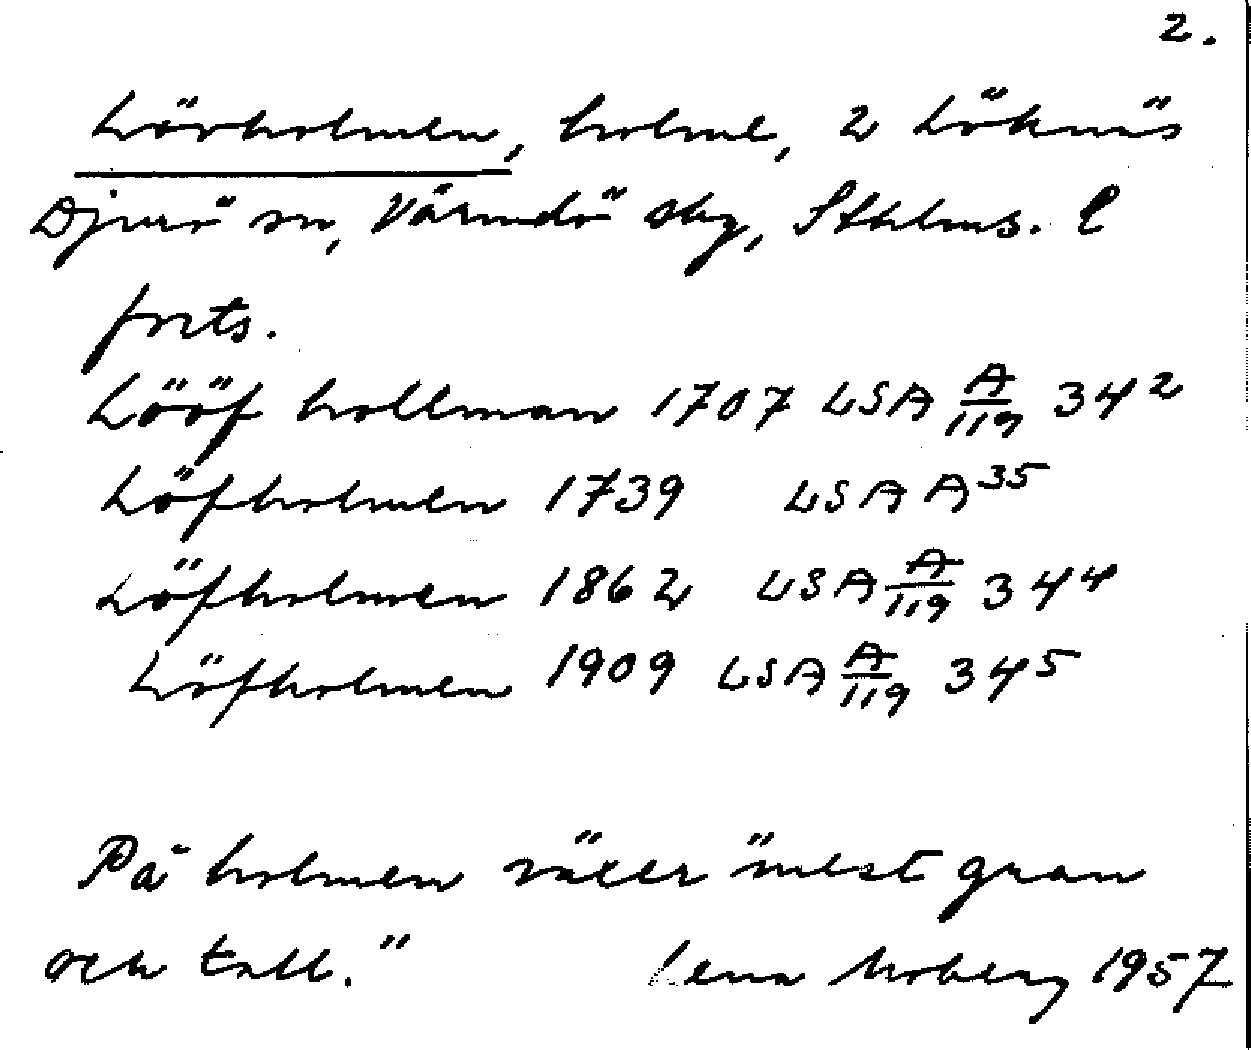 2.
Lövholmen, holme, 2 Löknäs
Djurö sn, Värmdö skg, Sthlms. l
forts.
Lööf hollman 1707 LSA A/119 34²
Löfholmen 1739 LSA A³⁵
Löfholmen 1862 LSA A/119 34⁴
Löfholmen 1909 LSA A/119 34⁵
På holmen växer "mest gran
och tall."
Lena Moberg 1957